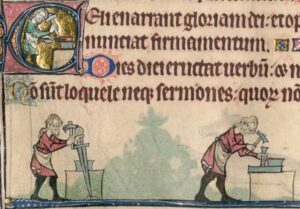 Celi enarrant gloriam dei: et op
nunciat firmamentum.
Dies diei eructat verbū: &
No sūnt loquele neq; sermones: quor nō